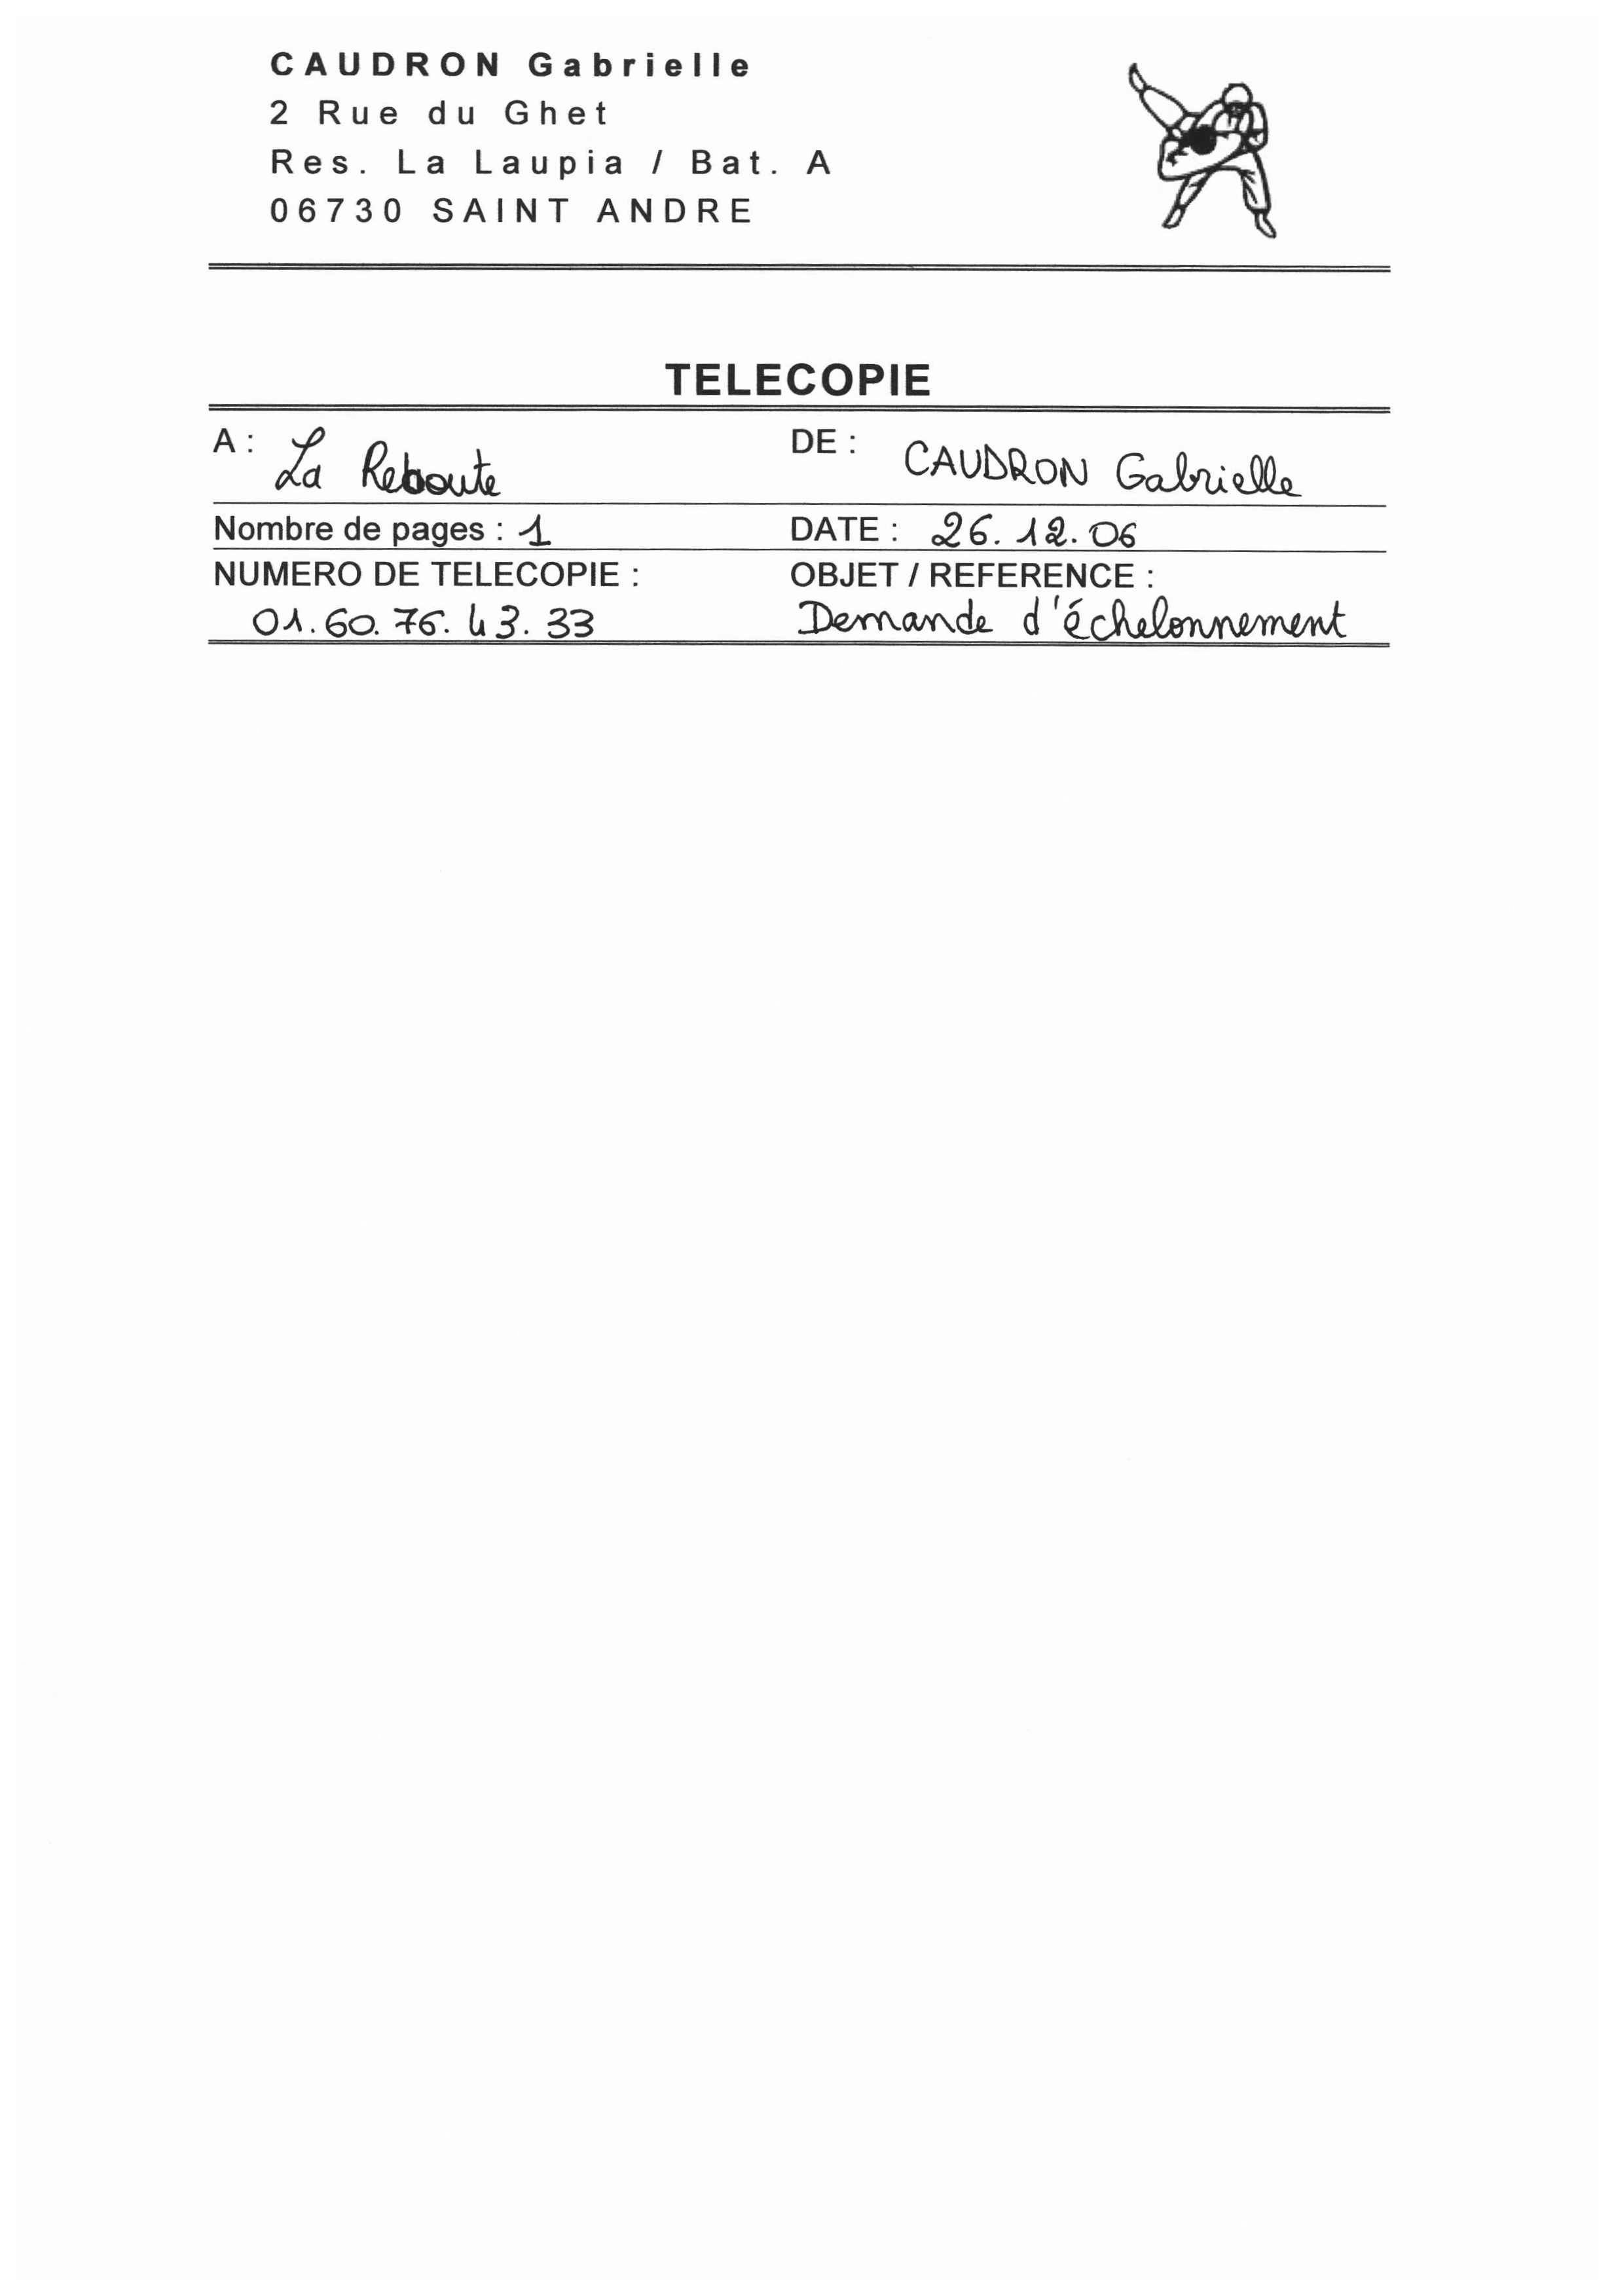 CAUDRON Gabrielle
2 Rue du Ghet
Res. La Laupia / Bat. A
06730 SAINT ANDRE
TELECOPIE
A : La Reboute DE : CAUDRON Gabrielle
Nombre de pages : 1 DATE : 26.12.06
NUMERO DE TELECOPIE : OBJET / REFERENCE :
01.60.76.43.33 Demande d'échelonnement